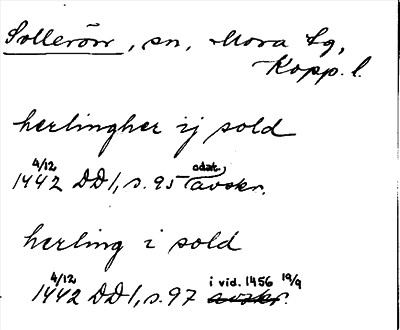 Sollerön, sn, Mora tg,
Kopp. l.
herlingher ij sold
4/12 odat.
1442 DD1, s. 95 avskr.
herling i sold
4/12 i vid. 1456 19/9
1442 DD1, s. 97 avskr.